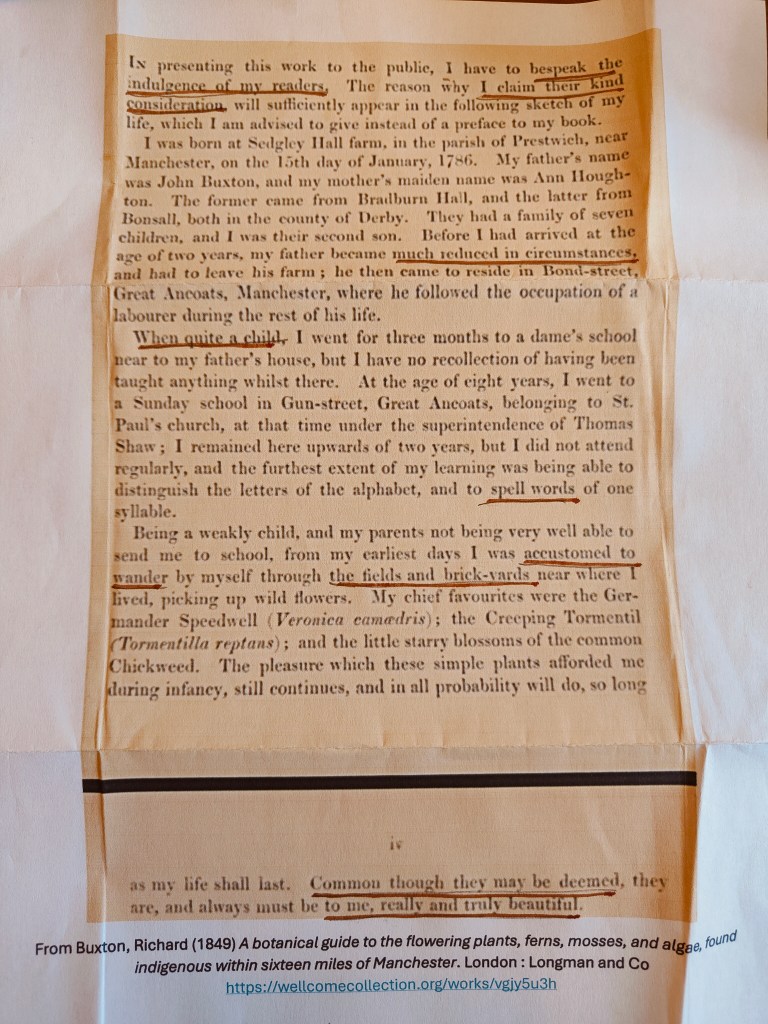 In presenting this work to the public, I have to bespeak the
indulgence of my readers. The reason why I claim their kind
consideration, will sufficiently appear in the following sketch of my
life, which I am advised to give instead of a preface to my book.
I was born at Sedgley Hall farm, in the parish of Prestwich, near
Manchester, on the 15th day of January, 1786. My father's name
was John Buxton, and my mother's maiden name was Ann Hough-
ton. The former came from Bradburn Hall, and the latter from
Bonsall, both in the county of Derby. They had a family of seven
children, and I was their second son. Before I had arrived at the
age of two years, my father became much reduced in circumstances,
and had to leave his farm; he then came to reside in Bond-street,
Great Ancoats, Manchester, where he followed the occupation of a
labourer during the rest of his life.
When quite a child, I went for three months to a dame's school
near to my father's house, but I have no recollection of having been
taught anything whilst there. At the age of eight years, I went to
a Sunday school in Gun-street, Great Ancoats, belonging to St.
Paul's church, at that time under the superintendence of Thomas
Shaw; I remained here upwards of two years, but I did not attend
regularly, and the furthest extent of my learning was being able to
distinguish the letters of the alphabet, and to spell words of one
syllable.
Being a weakly child, and my parents not being very well able to
send me to school, from my earliest days I was accustomed to
wander by myself through the fields and brick-yards near where I
lived, picking up wild flowers. My chief favourites were the Ger-
mander Speedwell (Veronica camædris); the Creeping Tormentil
(Tormentilla reptans); and the little starry blossoms of the common
Chickweed. The pleasure which these simple plants afforded me
during infancy, still continues, and in all probability will do, so long
iv
as my life shall last. Common though they may be deemed, they
are, and always must be to me, really and truly beautiful.
From Buxton, Richard (1849) A botanical guide to the flowering plants, ferns, mosses, and algae, found
indigenous within sixteen miles of Manchester. London : Longman and Co
https://wellcomecollection.org/works/vgjy5u3h